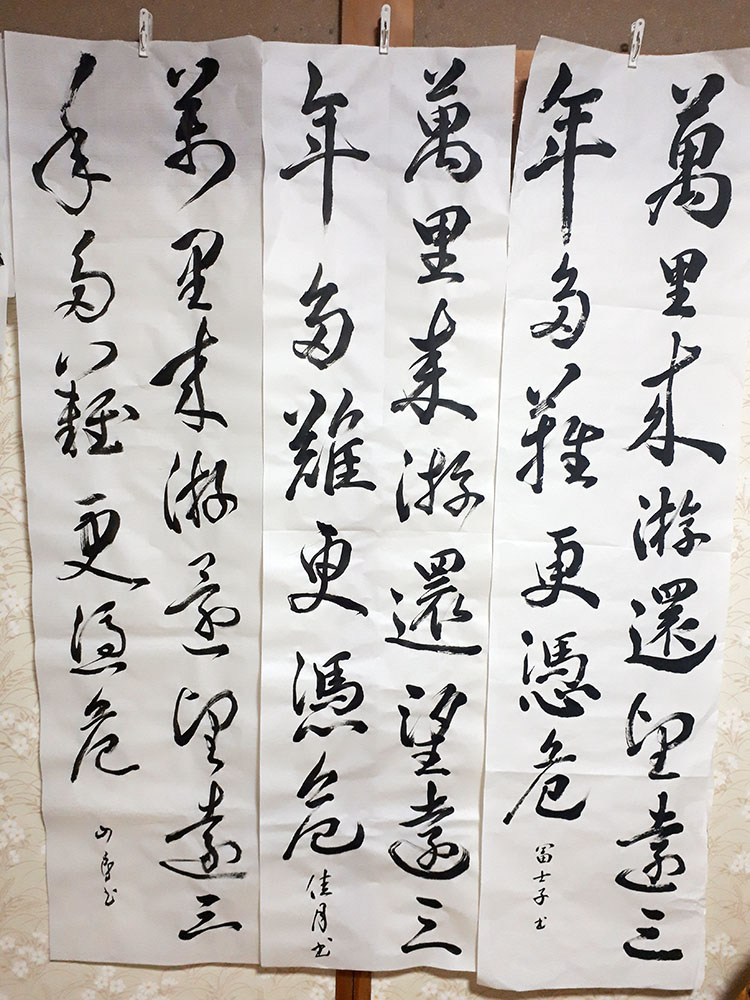 萬里来游還望遠三
年多難更憑危
冨士子書
萬里来游還望遠三
年多難更憑危
佳月書
萬里来游還望遠三
年多難更憑危